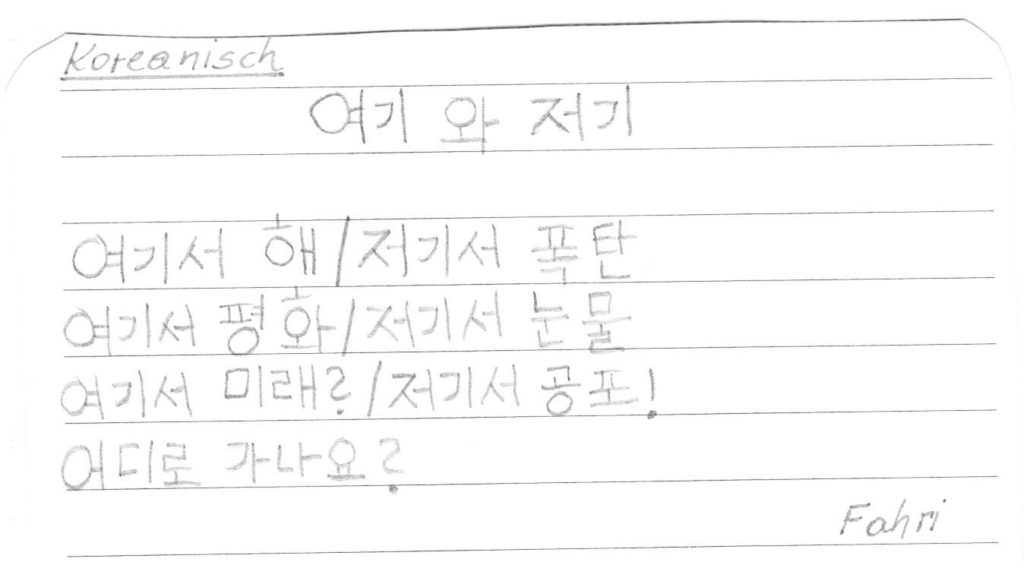 Koreanisch
여기 와 저기
여기서 해/저기서 폭탄
여기서 평화/저기서 눈물
여기서 미래?/저기서 공포!
어디로 가나요?
Fahri